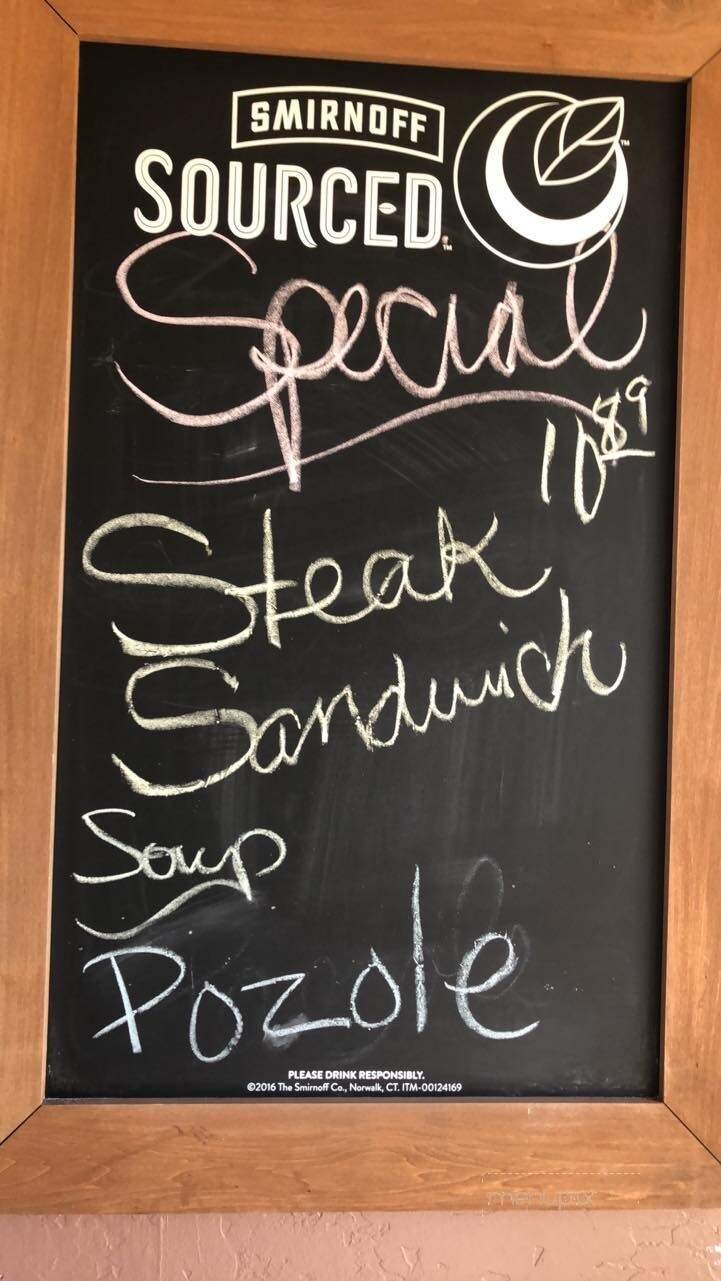 SMIRNOFF
SOURCED™
Special
10 89
Steak
Sandwich
Soup
Pozole
PLEASE DRINK RESPONSIBLY.
©2016 The Smirnoff Co., Norwalk, CT. ITM-00124169
menupix